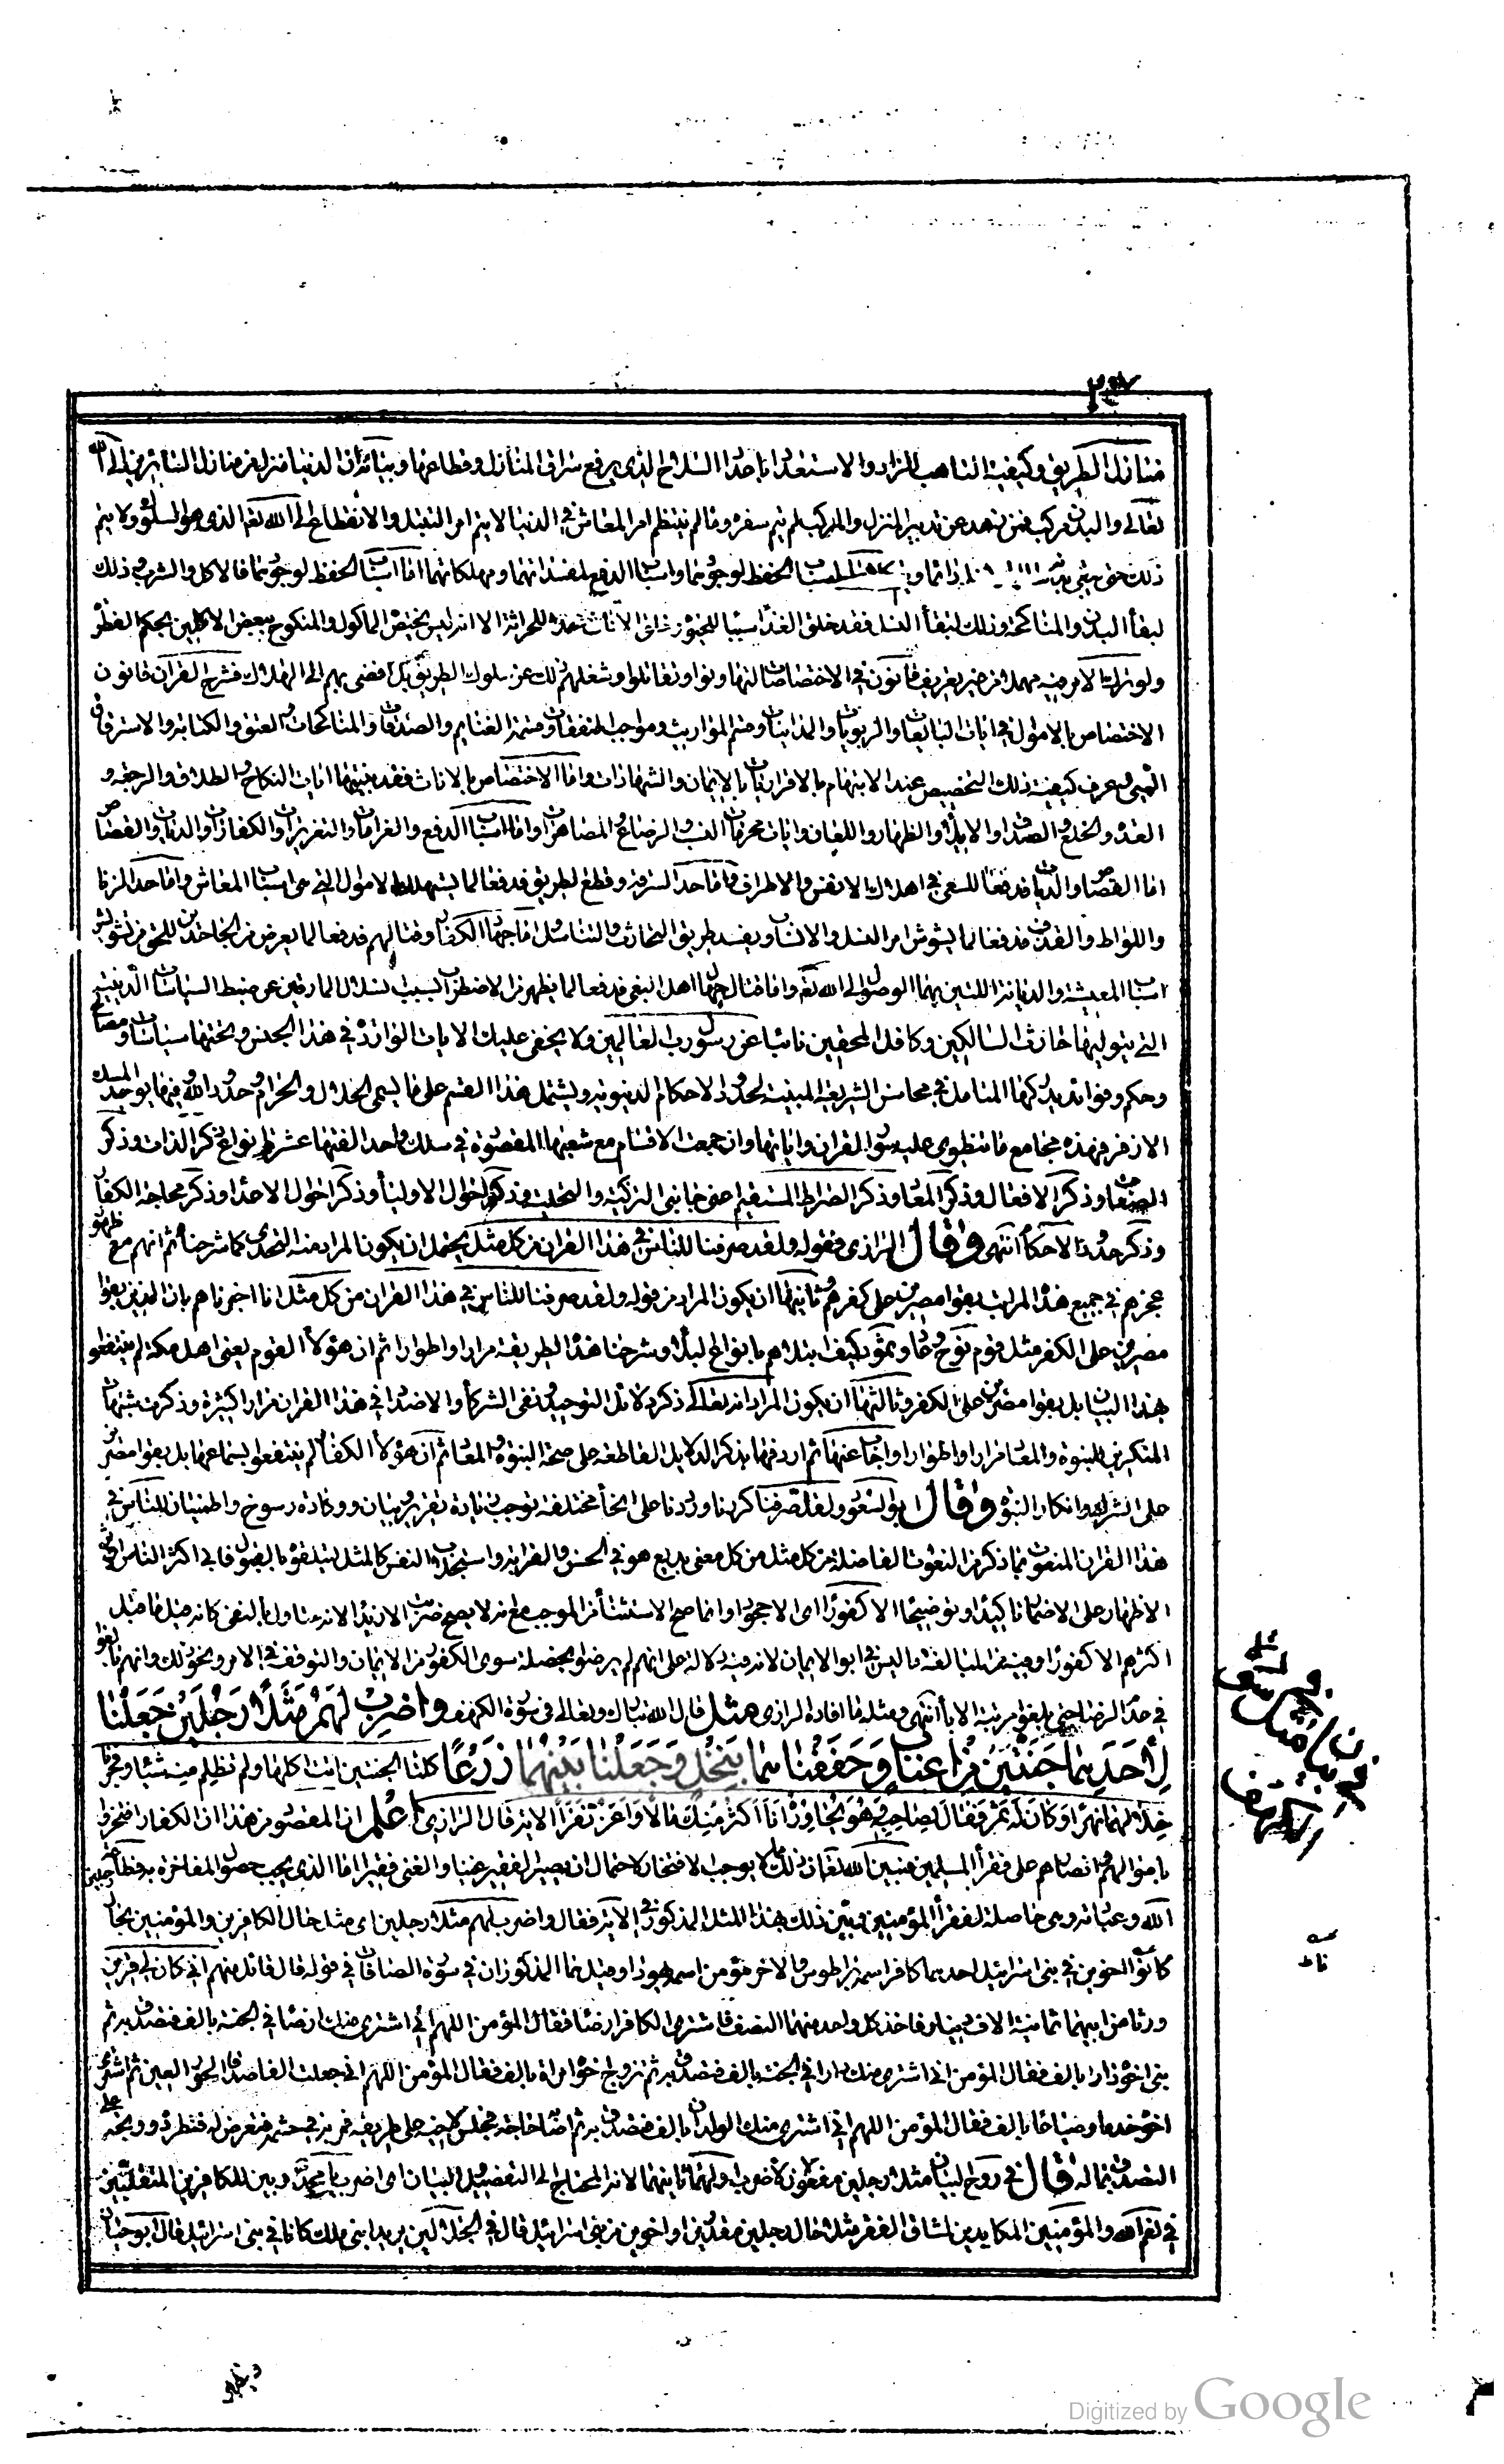 منازل الطريق وكيفية التاهب للزاد والاستعداد باعداد السلاح الذى يرفع سراق المنازل وقطاعها وبيانه ان الدنيا منزل من منازل السائرين الى الله
تعالى والبدن مركب فمن ذهد عن تدبير المنزل والمركب لم يتم سفره ومالم ينتظم امر المعاش فى الدنيا لا يتم امر التبتل والانقطاع الى الله تعم الذى هو السلوك ولا يتم
ذلك حتى يبقى اسباب الحفظ لوجودهما واسباب الدفع لمفسداتهما ومهلكاتهما اما اسباب الحفظ لوجودهما فالاكل والشرب وذلك
لبقاء البدن والمناكحة وذلك لبقاء النسل فقد خلق الغذاء سببا للحيوة وخلق الاناث محلا للحراثة الا انه ليس يختص الماكول والمنكوح ببعض الاكلين بحكم الفطرة
ولو ترك الامر فيه مهملا من غير تعريف قانون فى الاختصاصات لتهاوشوا وتقاتلوا وشغلهم ذلك عن سلوك الطريق بل افضى بهم الى الهلاك فشرح القران قانون
الاختصاص بالاموال فى ايات المبايعات والربويات والمداينات وقسم المواريث ومواجب النفقات وقسمة الغنايم والصدقات والمناكحات والعتق والكتابة والاسترقاق
السبى وعرف كيفية ذلك التخصيص عند الاتهام بالاقاريات بالايمان والشهادات واما الاختصاص بالاناث فقد بينتها ايات النكاح والطلاق والرجعة و
العدة والخلع والصداق والايلاء والظهار واللعان وايات محرمات النسب والرضاع والمصاهرات واما اسباب الدفع والغرامات والتعزيرات والكفارات والديات والقصاص
اما القصاص والديات فدفعا للسعى فى اهلاك الانفس والاطراف واما حد السرقة وقطع الطريق فدفعا لما يستهلك الاموال التى هى اسباب المعاش واما حد الزنا
واللواط والقذف فدفعا لما يشوش امر النسل والانساب ويفسد طريق التحارث والتناسل اما جهاد الكفار وقتالهم فدفعا لما يعرض من الجاحدين للحق من تشويش
اسباب المعيشة والديانة اللتين بهما الوصول الى الله تعم واما قتال جهاد اهل البغى فدفعا لما يظهر من الاضطراب بسبب انسلال المارقين عن ضبط السياسات الدينية
التى يتوليها حارث السالكين وكافل المحقين نائبا عن رسول رب العالمين ولا يخفى عليك الايات الواردة فى هذا الجنس وتحتها سياسات ومصالح
وحكم وفوائد يدركها المتامل فى محاسن الشريعة المبينة لحدود الاحكام الدنيوية ويشتمل هذا القسم على ما يسمى الحلال والحرام وحدود الله وفيها يوجد المسك
الاذفر فهذه مجامع ما تنطوى عليه سور القران واياتها وان جمعت الاقسام مع شعبها المقصودة فى سلك واحد الفتها عشرة انواع ذكر الذات وذكر
الصفات وذكر الافعال وذكر المعاد وذكر الصراط المستقيم اعنى جانبى التزكية والتحلية وذكر احوال الاولياء وذكر احوال الاعداء وذكر محاجة الكفار
وذكر حدود الاحكام انتهى وقال الرازى فقوله ولقد صرفنا للناس فى هذا القران من كل مثل يحتمل ان يكون المراد منه التحدى كما شرحنا ثم انهم مع ظهور
عجزهم فى جميع هذا المراتب بقوا مصرين على كفرهم ثانيها ان يكون المراد من قوله ولقد صرفنا للناس فى هذا القران من كل مثل انا اخبرناهم بان الذين بقوا
مصرين على الكفر مثل قوم نوح وعاد وثمود كيف ابتلاهم بانواع البلاء وشرحنا هذا الطريقة مرارا واطوارا ثم ان هؤلاء القوم يعنى اهل مكة لم ينتفعوا
بهذا البيان بل بقوا مصرين على الكفر وثالثها ان يكون المراد انه تعالى ذكر دلائل التوحيد ونفى الشركاء والاضداد فى هذا القران مرارا كثيرة وذكر شبهات
المنكرين للنبوة والمعاد مرارا واطوارا واجاب عنها ثم اردفها بذكر الدلايل القاطعة على صحة النبوة والمعاد ثم ان هؤلاء الكفار لم ينتفعوا بسماعها بل بقوا مصرين
على الشرك وانكار النبوة وقال ابو السعود ولقد صرفنا كررنا ورددنا على انحاء مختلفة توجب زيادة تقرير وبيان ووكادة رسوخ واطمينان للناس فى
هذا القران المنعوت بما ذكر من النعوت الفاضلة من كل مثل من كل معنى بديع هو فى الحسن والغرابة واستجلاب النفس كالمثل ليتلقوه بالقبول فابى اكثر الناس اوثر
الاظهار على الاضمار تاكيدا وتوضيحا الا كفورا اى الا جحودا وانما صح الاستثناء من الموجب مع انه لا يصح ضربت الا زيدا لانه متاول بالنفى كانه قيل ما قبل
اكثرهم الا كفورا وفيه من المبالغة ما ليس فى ابوا الايمان لان فيه دلالة على انهم لم يرضوا بخصلة سوى الكفور من الايمان والتوقف فى الامر ونحو ذلك وانهم بالغوا
فى عدم الرضا حتى بلغوا مرتبة الاباء انتهى ومثله ما افاده الرازى مثل قال الله تبارك وتعالى فى سورة الكهف واضرب لهم مثلا رجلين جعلنا
لِأَحَدِهِمَا جَنَّتَيْنِ مِنْ أَعْنَابٍ وَحَفَفْنَاهُمَا بِنَخْلٍ وَجَعَلْنَا بَيْنَهُمَا زَرْعًا كلتا الجنتين اتت اكلها ولم تظلم منه شيئا وفجرنا
خلالهما نهرا وكان له ثمر فقال لصاحبه وهو يحاوره انا اكثر منك مالا واعز نفرا الاية قال الرازى اعلم ان المقصود من هذا ان الكفار افتخروا
باموالهم وانصارهم على فقراء المسلمين فبين الله تعم ان ذلك مما لا يوجب الافتخار لاحتمال ان يصير الفقير غنيا والغنى فقيرا اما الذى يجب حصول المفاخرة به فطاعة
الله وعبادته وهى حاصلة لفقراء المؤمنين وبين ذلك بهذا المثل المذكور فى الاية فقال واضرب لهم مثلا رجلين اى مثل حال الكافرين والمؤمنين بحال
كانوا اخوين فى بنى اسرائيل احدهما كافر اسمه براطوس والاخر مؤمن اسمه يهوذا وقيل هما المذكوران فى سورة الصافات فى قوله قال قائل منهم انى كان لى قرين
ورثا من ابيهما ثمانية الاف دينار فاخذ كل واحد منهما النصف فاشترى الكافر ارضا فقال المؤمن اللهم انى اشترى منك ارضا فى الجنة بالف فتصدق به ثم
بنى اخوه دارا بالف فقال المؤمن انى اشترى منك دارا فى الجنة بالف فتصدق به ثم تزوج اخوه امراة بالف فقال المؤمن اللهم انى جعلت الفا صداقا للحور العين ثم اشترى
اخوه خدما وضياعا بالف فقال المؤمن اللهم انى اشترى منك الولدان بالف فتصدق به ثم اصابته حاجة فجلس لاخيه على طريقه فمر به فى حشمه فتعرض له فطرده ووبخه على
التصدق بماله وقال فى روح البيان مثلا رجلين مفعولان لاضرب اولهما ثانيهما لانه المحتاج الى التفصيل والبيان اى اضرب يا محمد وبين للكافرين المتقلبين
فى نعم الله والمؤمنين المكابدين لمشاق الفقر مثلا حال رجلين مقدرين او اخوين من بنى اسرائيل قال فى الجلالين يريد ابنى ملك كانا فى بنى اسرائيل قال ابو حيان